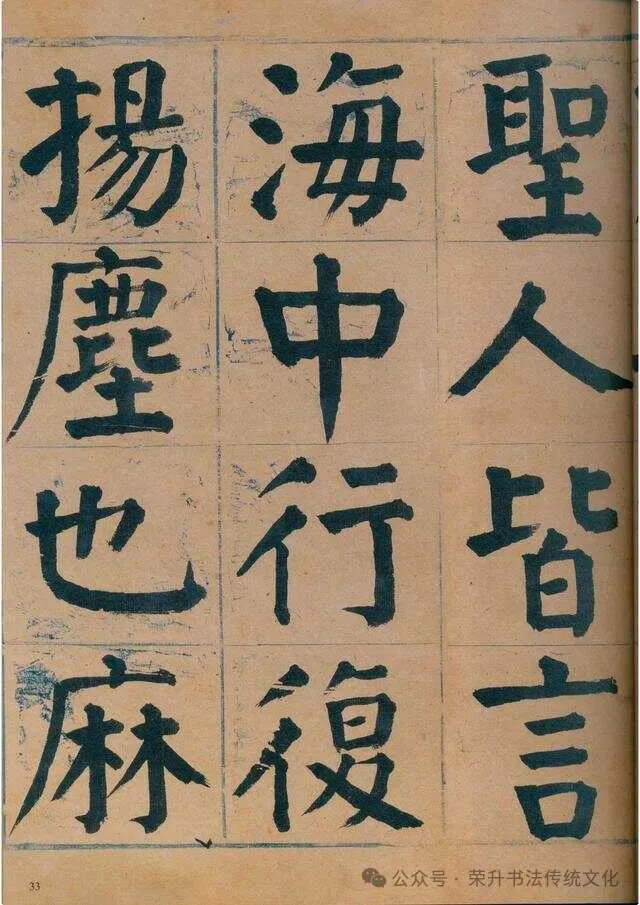 聖人皆言
海中行復
揚塵也麻
33
公众号·荣升书法传统文化